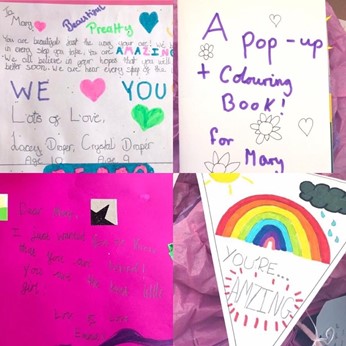 To
Mary,
Beautiful
Preatty
You are beautiful just the way your are! we
in every step you take. You are AMAZING
We all believe in your hopes that you will
better soon. We are hear every step of the
WE YOU
Lots of Love,
Lacey Draper, Crystal Draper
Age 10 Age 9
A
Pop-up
+ Colouring
Book!
for Mary
Dear
I just wanted
you are
you are the best little
girl
YOU'RE...
AMZING